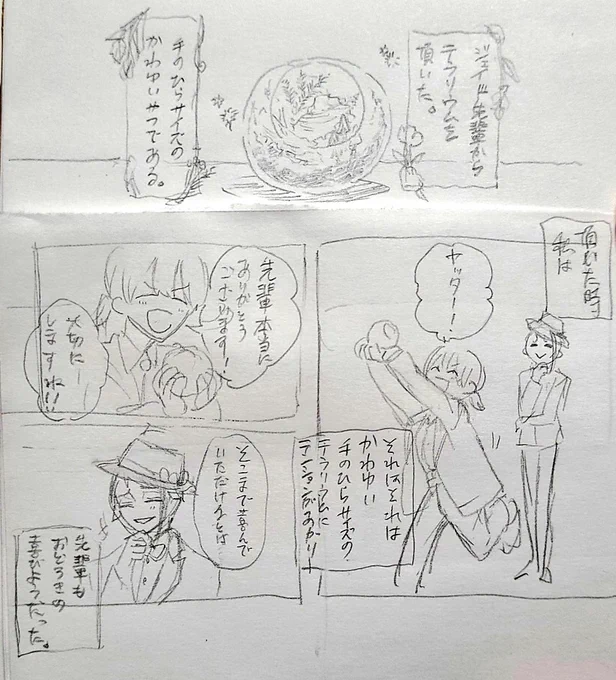 ジェイド先輩から
テラリウムを
頂いた。
手のひらサイズの
かわゆいやつである。
頂いた時、
私は
ヤッター！
それはそれは
かわゆい
手のひらサイズの
テラリウムに
テンションがあがり
先輩本当に
ありがとう
ございます！
大切に
しますね!!
そこまで喜んで
いただけるとは
先輩も
おどろきの
喜びようだった。